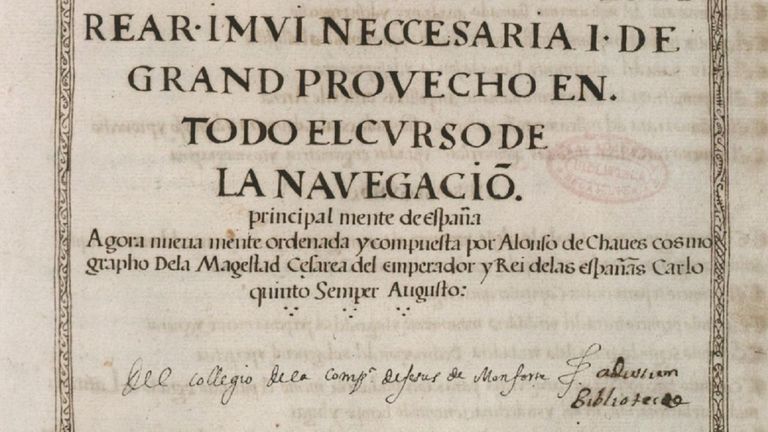 REAR·IMVI NECCESARIA I·DE
GRAND PROVECHO EN.
TODO EL CVRSO DE
LA NAVEGACIÕ.
principal mente de españa
Agora nueua mente ordenada y compuesta por Alonso de Chaues cosmo
grapho Dela Magestad Cęsarea del emperador y Rei delas españas Carlo
quinto Semper Augusto:
Del collegio dela compª. de Jesus de Monforte
ad usum
Bibliotecae